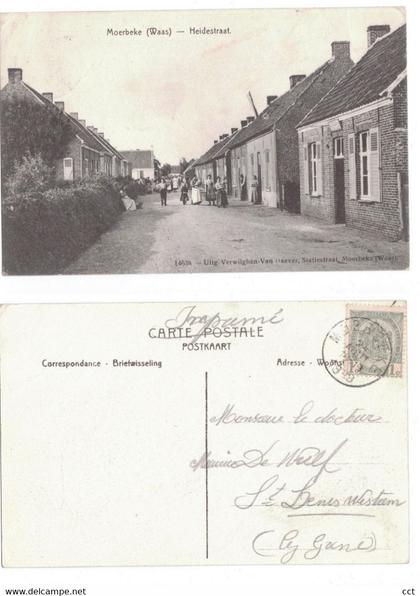 Moerbeke (Waas) — Heidestraat.
14634 – Uitg. Verwilghen-Van Daever, Statiestraat, Moerbeke (Waes).
Imprimé
CARTE POSTALE
POSTKAART
Correspondance - Briefwisseling
Adresse - Woonst
Monsieur le docteur
Maurice De Wulf
St Denis Westrem
(lez Gand)
cct